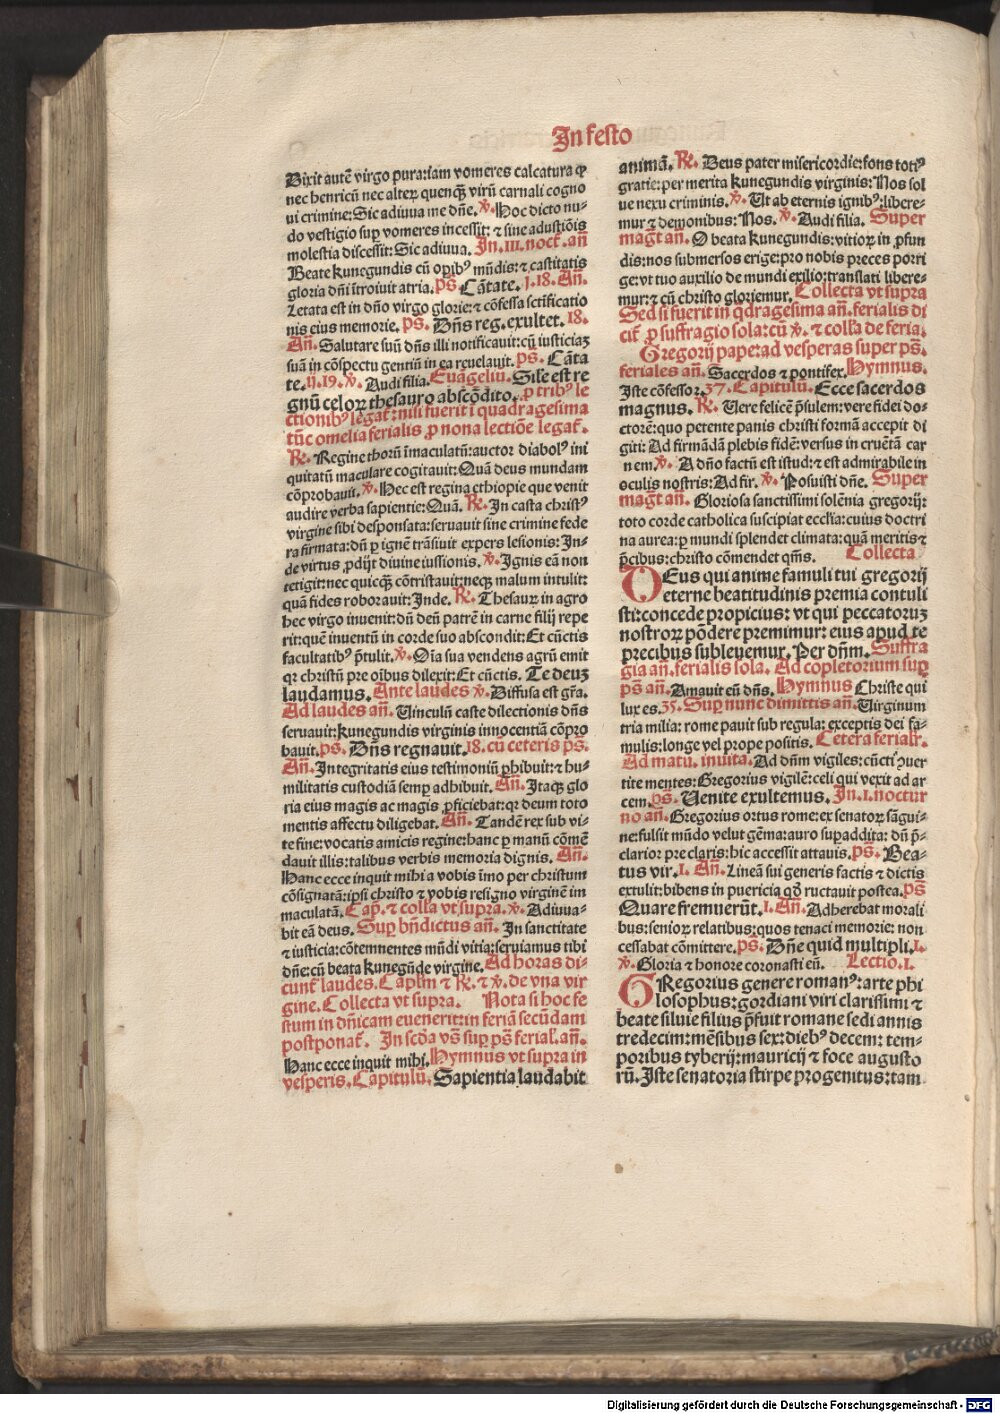 In festo
Dixit autē virgo pura:iam vomeres calcatura ꝙ
nec henricū nec alteꝝ quenqꝫ virū carnali cogno
ui crimine:Sic adiuua me dn̄e. ℣.Hoc dicto nu-
do vestigio sup vomeres incessit: ⁊ sine adustiōis
molestia discessit:Sic adiuua. In.III.noct̄.an̄
Beate kunegundis cū opibꝰ mūdis:⁊ castitatis
gloria dn̄i ītroiuit atria.ps̄ Cātate. j.18.An̄.
Letata est in dn̄o virgo glorie:⁊ cōfessa sctificatio
nis eius memorie. ps̄. Dn̄s reg.exultet. 18.
An̄. Salutare suū dn̄s illi notificauit:cū iusticiaꝫ
suā in cōspectu gentiū in ea reuelauit. ps̄. Cāta
te.ij.19.℣. Audi filia.Euāgeliū. Sile est re
gnū celoꝝ thesauro abscōdito. ꝓ tribꝰ le
ctionibꝰ legat̄:nisi fuerit ī quadragesima
tūc omelia ferialis ꝓ nona lectiōe legat̄.
℟. Regine thorū īmaculatū:auctor diabolꝰ ini
quitatū maculare cogitauit:Quā deus mundam
cōprobauit. ℣.Hec est regina ethiopie que venit
audire verba sapientie:Quā. ℟.In casta christꝰ
virgine sibi desponsata:seruauit sine crimine fede
ra firmata:dū ꝑ ignē trāsiuit expers lesionis: In-
de virtus ꝓdijt diuine iussionis. ℣.Ignis eā non
tetigit:nec quicqꝫ cōtristauit:neqꝫ malum intulit:
quā fides roborauit:Inde. ℟. Thesauꝝ in agro
hec virgo inuenit:dū deū patrē in carne filij repe
rit:quē inuentū in corde suo abscondit:Et cūctis
facultatibꝰ p̄tulit.℣.Oīa sua vendens agrū emit
qr christū pre oībus dilexit:Et cūctis. Te deuꝫ
laudamus. Ante laudes ℣. Diffusa est gr̄a.
Ad laudes an̄. Vinculū caste dilectionis dn̄s
seruauit:kunegundis virginis innocentiā cōpro
bauit.ps̄. Dn̄s regnauit.18.cū ceteris ps̄.
An̄.Integritatis eius testimoniū ꝑhibuit:⁊ hu-
militatis custodiā semꝑ adhibuit. An̄. Itaqꝫ glo
ria eius magis ac magis ꝓficiebat:qr deum toto
mentis affectu diligebat. An̄. Tandē rex sub vi-
te fine:vocatis amicis regine:hanc ꝑ manū cōmē
dauit illis:talibus verbis memoria dignis. An̄.
Hanc ecce inquit mihi a vobis īmo per christum
cōsignatā:ipsi christo ⁊ vobis resigno virginē im
maculatā. Cap̄.⁊ colla vt supra.℣.Adiuua-
bit eā deus. Sup bn̄dictus an̄. In sanctitate
⁊ iusticia:cōtemnentes mūdi vitia:seruiamus tibi
dn̄e:cū beata kunegūde virgine. Ad horas di-
cunt̄ laudes. Caplm ⁊ ℟.⁊ ℣.de vna vir
gine. Collecta vt supra. Nota si hoc fe
stum in dn̄icam euenerit:in feriā secūdam
postponat̄. In scda vs̄ sup ps̄ ferial̄.an̄.
Hanc ecce inquit mihi.Hymnus vt supra in
vesperis. Capitulū. Sapientia laudabit
animā. ℟. Deus pater misericordie:fons totiꝰ
gratie:per merita kunegundis virginis: Nos sol
ue nexu criminis. ℣. Ut ab eternis ignibꝰ:libere-
mur ⁊ demonibus:Nos. ℣. Audi filia. Super
mag̅t an̄. O beata kunegundis:vitioꝝ in ꝓfun
dis:nos submersos erige:pro nobis preces porri
ge:vt tuo auxilio de mundi exilio:translati libere-
mur:⁊ cū christo gloriemur. Collecta vt supra
Sed si fuerit in qdragesima an̄.ferialis di
cit̄ ꝓ suffragio sola:cū ℣. ⁊ coll̄a de feria.
Gregorij pape:ad vesperas super ps̄.
feriales an̄. Sacerdos ⁊ pontifex.Hymnus.
Iste cōfessor.37. Capitulū. Ecce sacerdos
magnus. ℟. Vere felicē p̄sulem:vere fidei do-
ctorē:quo petente panis christi formā accepit di
giti: Ad firmādā plebis fidē:versus in cruētā car
nem.℣. A dn̄o factū est istud:⁊ est admirabile in
oculis nostris:Ad fir. ℣. Posuisti dn̄e. Super
mag̅t an̄. Gloriosa sanctissimi solēnia gregorij:
toto corde catholica suscipiat eccl̄ia:cuius doctri
na aurea:ꝑ mundi splendet climata:quā meritis ⁊
p̄cibus:christo cōmendet qm̄s. Collecta
DEus qui anime famuli tui gregorij
eterne beatitudinis premia contuli
sti:concede propicius: vt qui peccatoruꝫ
nostroꝝ pōdere preminur: eius apud te
precibus subleuemur. Per dn̄m. Suffra
gia an̄.ferialis sola. Ad cōpletorium sup
ps̄ an̄. Amauit eū dn̄s. Hymnus Christe qui
lux es.35. Sup nunc dimittis an̄.Virginum
tria milia: rome pauit sub regula: exceptis dei fa-
mulis:longe vel prope positis. Cetera ferialr̄.
Ad matu. inuita. Ad dn̄m vigiles:cūcti ꝯuer
tite mentes:Gregorius vigilē:celi qui vexit ad ar
cem.ps̄. Venite exultemus. In.I.noctur
no an̄. Gregorius ortus rome:ex senatoꝝ sāgui-
ne:fulsit mūdo velut gēma:auro supaddita: dū p̄-
clarior preclaris:hic accessit attauis.ps̄. Bea-
tus vir.I. An̄. Lineā sui generis factis ⁊ dictis
extulit:bibens in puericia qđ ructauit postea.ps̄
Quare fremuerūt.I. An̄. Adherebat morali
bus:senioꝝ relatibus:quos tenaci memorie: non
cessabat cōmittere. ps̄. Dn̄e quid multipli.I.
℣. Gloria ⁊ honore coronasti eū. Lectio.I.
GRegorius genere romanꝰ:arte phi
losophus:gordiani viri clarissimi ⁊
beate siluie filius p̄fuit romane sedi annis
tredecim:mēsibus sex:diebꝰ decem: tem-
poribus tyberij:mauricij ⁊ foce augusto
rū. Iste senatoria stirpe progenitus:tam
Digitalisierung gefördert durch die Deutsche Forschungsgemeinschaft - DFG